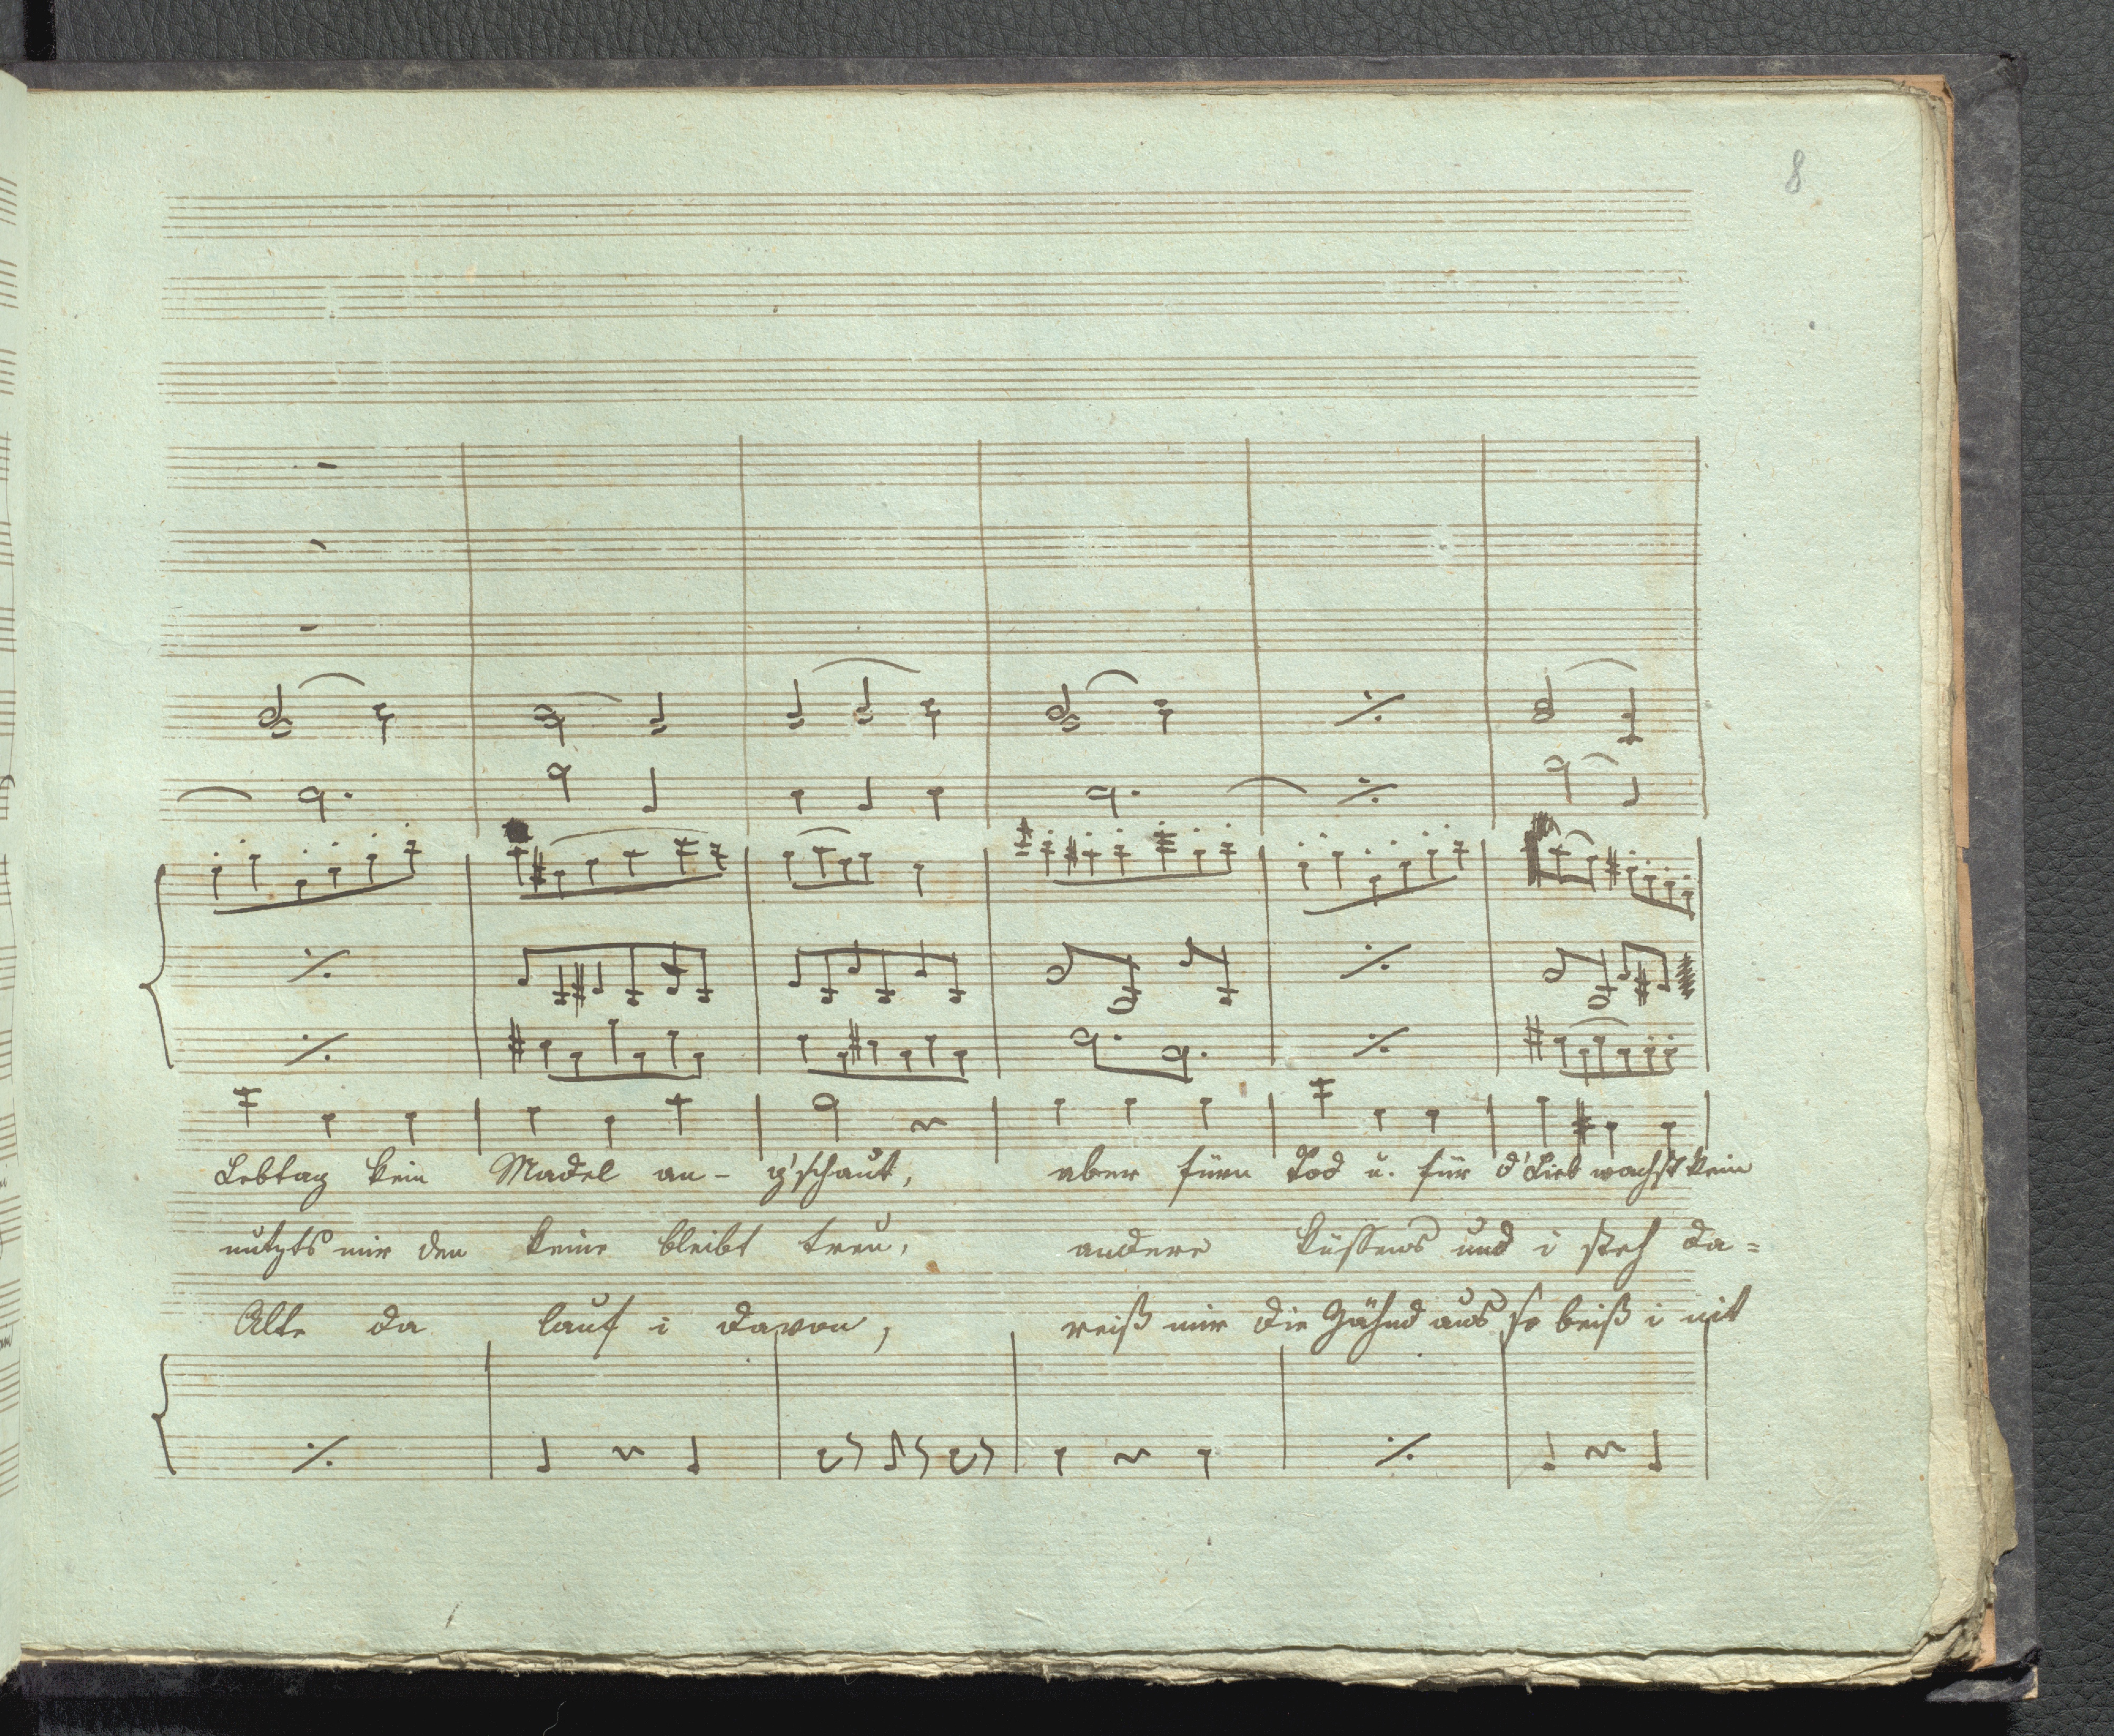 8
Lebtag kein Madel an- g'schaut, aber fürn Tod u. für d'Lieb wachst kein
nutzts mir den keine bleibt treu, andere küssens und i steh da=
Alte da lauf i davon, reiß mir die Zähnd aus so beiß i nit